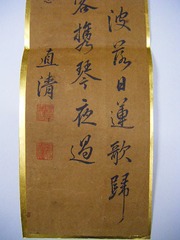 波落日蓮歌歸
容携琴夜過
直清